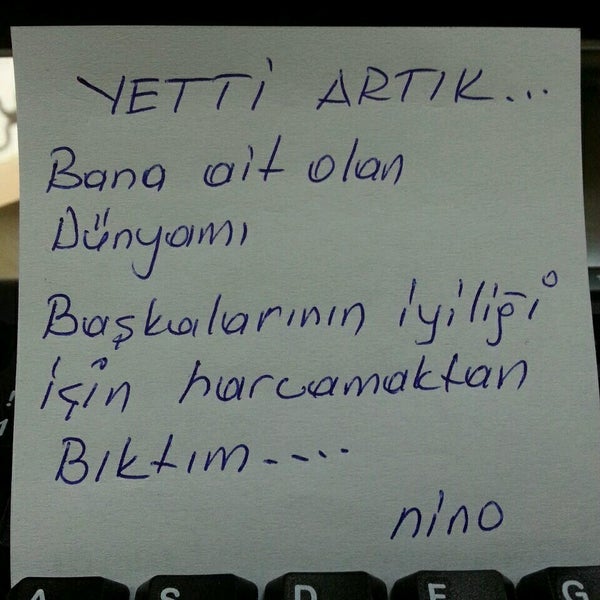 YETTİ ARTIK...
Bana ait olan
Dünyamı
Başkalarının iyiliği
için harcamaktan
Bıktım----..
nino
A S D F G